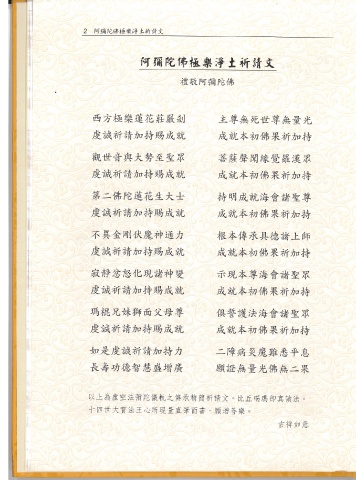 2 阿彌陀佛極樂淨土祈請文
阿彌陀佛極樂淨土祈請文
禮敬阿彌陀佛
西方極樂蓮花莊嚴剎 主尊無死世尊無量光
虔誠祈請加持賜成就 成就本初佛果祈加持
觀世音與大勢至聖眾 菩薩聲聞緣覺羅漢眾
虔誠祈請加持賜成就 成就本初佛果祈加持
第二佛陀蓮花生大士 持明成就海會諸聖尊
虔誠祈請加持賜成就 成就本初佛果祈加持
不異金剛伏魔神通力 根本傳承具德諸上師
虔誠祈請加持賜成就 成就本初佛果祈加持
寂靜忿怒化現諸神變 示現本尊海會諸聖眾
虔誠祈請加持賜成就 成就本初佛果祈加持
瑪姆兄妹獅面父母尊 俱誓護法海會諸聖眾
虔誠祈請加持賜成就 成就本初佛果祈加持
如是虔誠祈請加持力 二障病災魔難悉平息
長壽功德智慧盛增廣 願證無量光佛無二果
以上為虛空法彌陀儀軌之傳承精簡祈請文，比丘噶瑪即真請法，
十四世大寶法王心所現量直筆而書，願諸吉樂。
吉祥如意